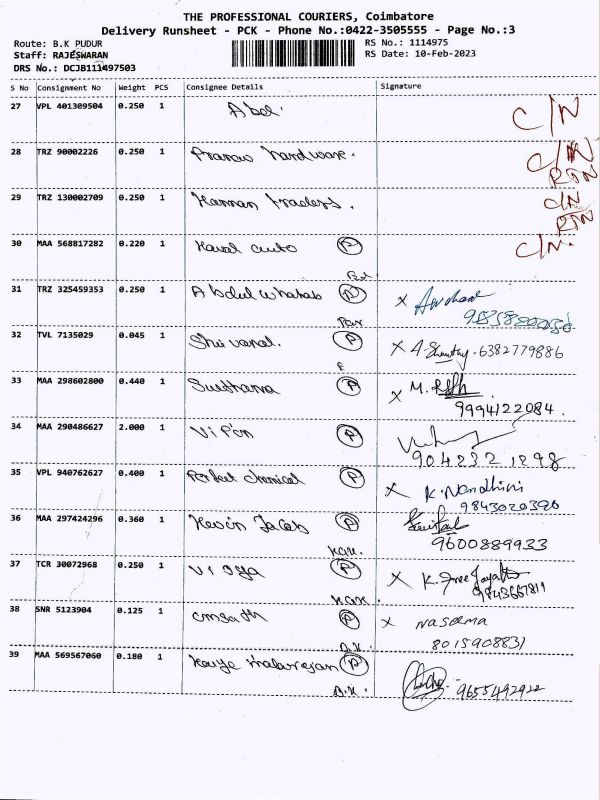 THE PROFESSIONAL COURIERS, Coimbatore
Delivery Runsheet - PCK - Phone No.:0422-3505555 - Page No.:3
Route: B.K PUDUR
RS No.: 1114975
Staff: RAJESWARAN
RS Date: 10-Feb-2023
DRS No.: DCJB111497503
S No Consignment No Weight PCS Consignee Details Signature
27 VPL 401309504 0.250 1 Abdl. C/N
28 TRZ 90002226 0.250 1 Pranav hardware. C/N
RTN
29 TRZ 130002709 0.250 1 traders. C/N
RTN
30 MAA 568817282 0.220 1 auto P C/N.
31 TRZ 325459353 0.250 1 Abdul whahab P X
9585880056
32 TVL 7135029 0.045 1 P X A. 6382779886
E
33 MAA 298602800 0.440 1 P X M.
9994122084.
34 MAA 290486627 2.000 1 Vipin P
35 VPL 940762627 0.400 1 Perfect chemical P X K. Nandhini
9843020390
36 MAA 297424296 0.360 1 Kevin Jacob P
9600889933
37 TCR 30072968 0.250 1 P X K.
38 SNR 5123904 0.125 1 P X Naseema
8015908831
A.K.
39 MAA 569567060 0.180 1 P
9655492922
A.K.